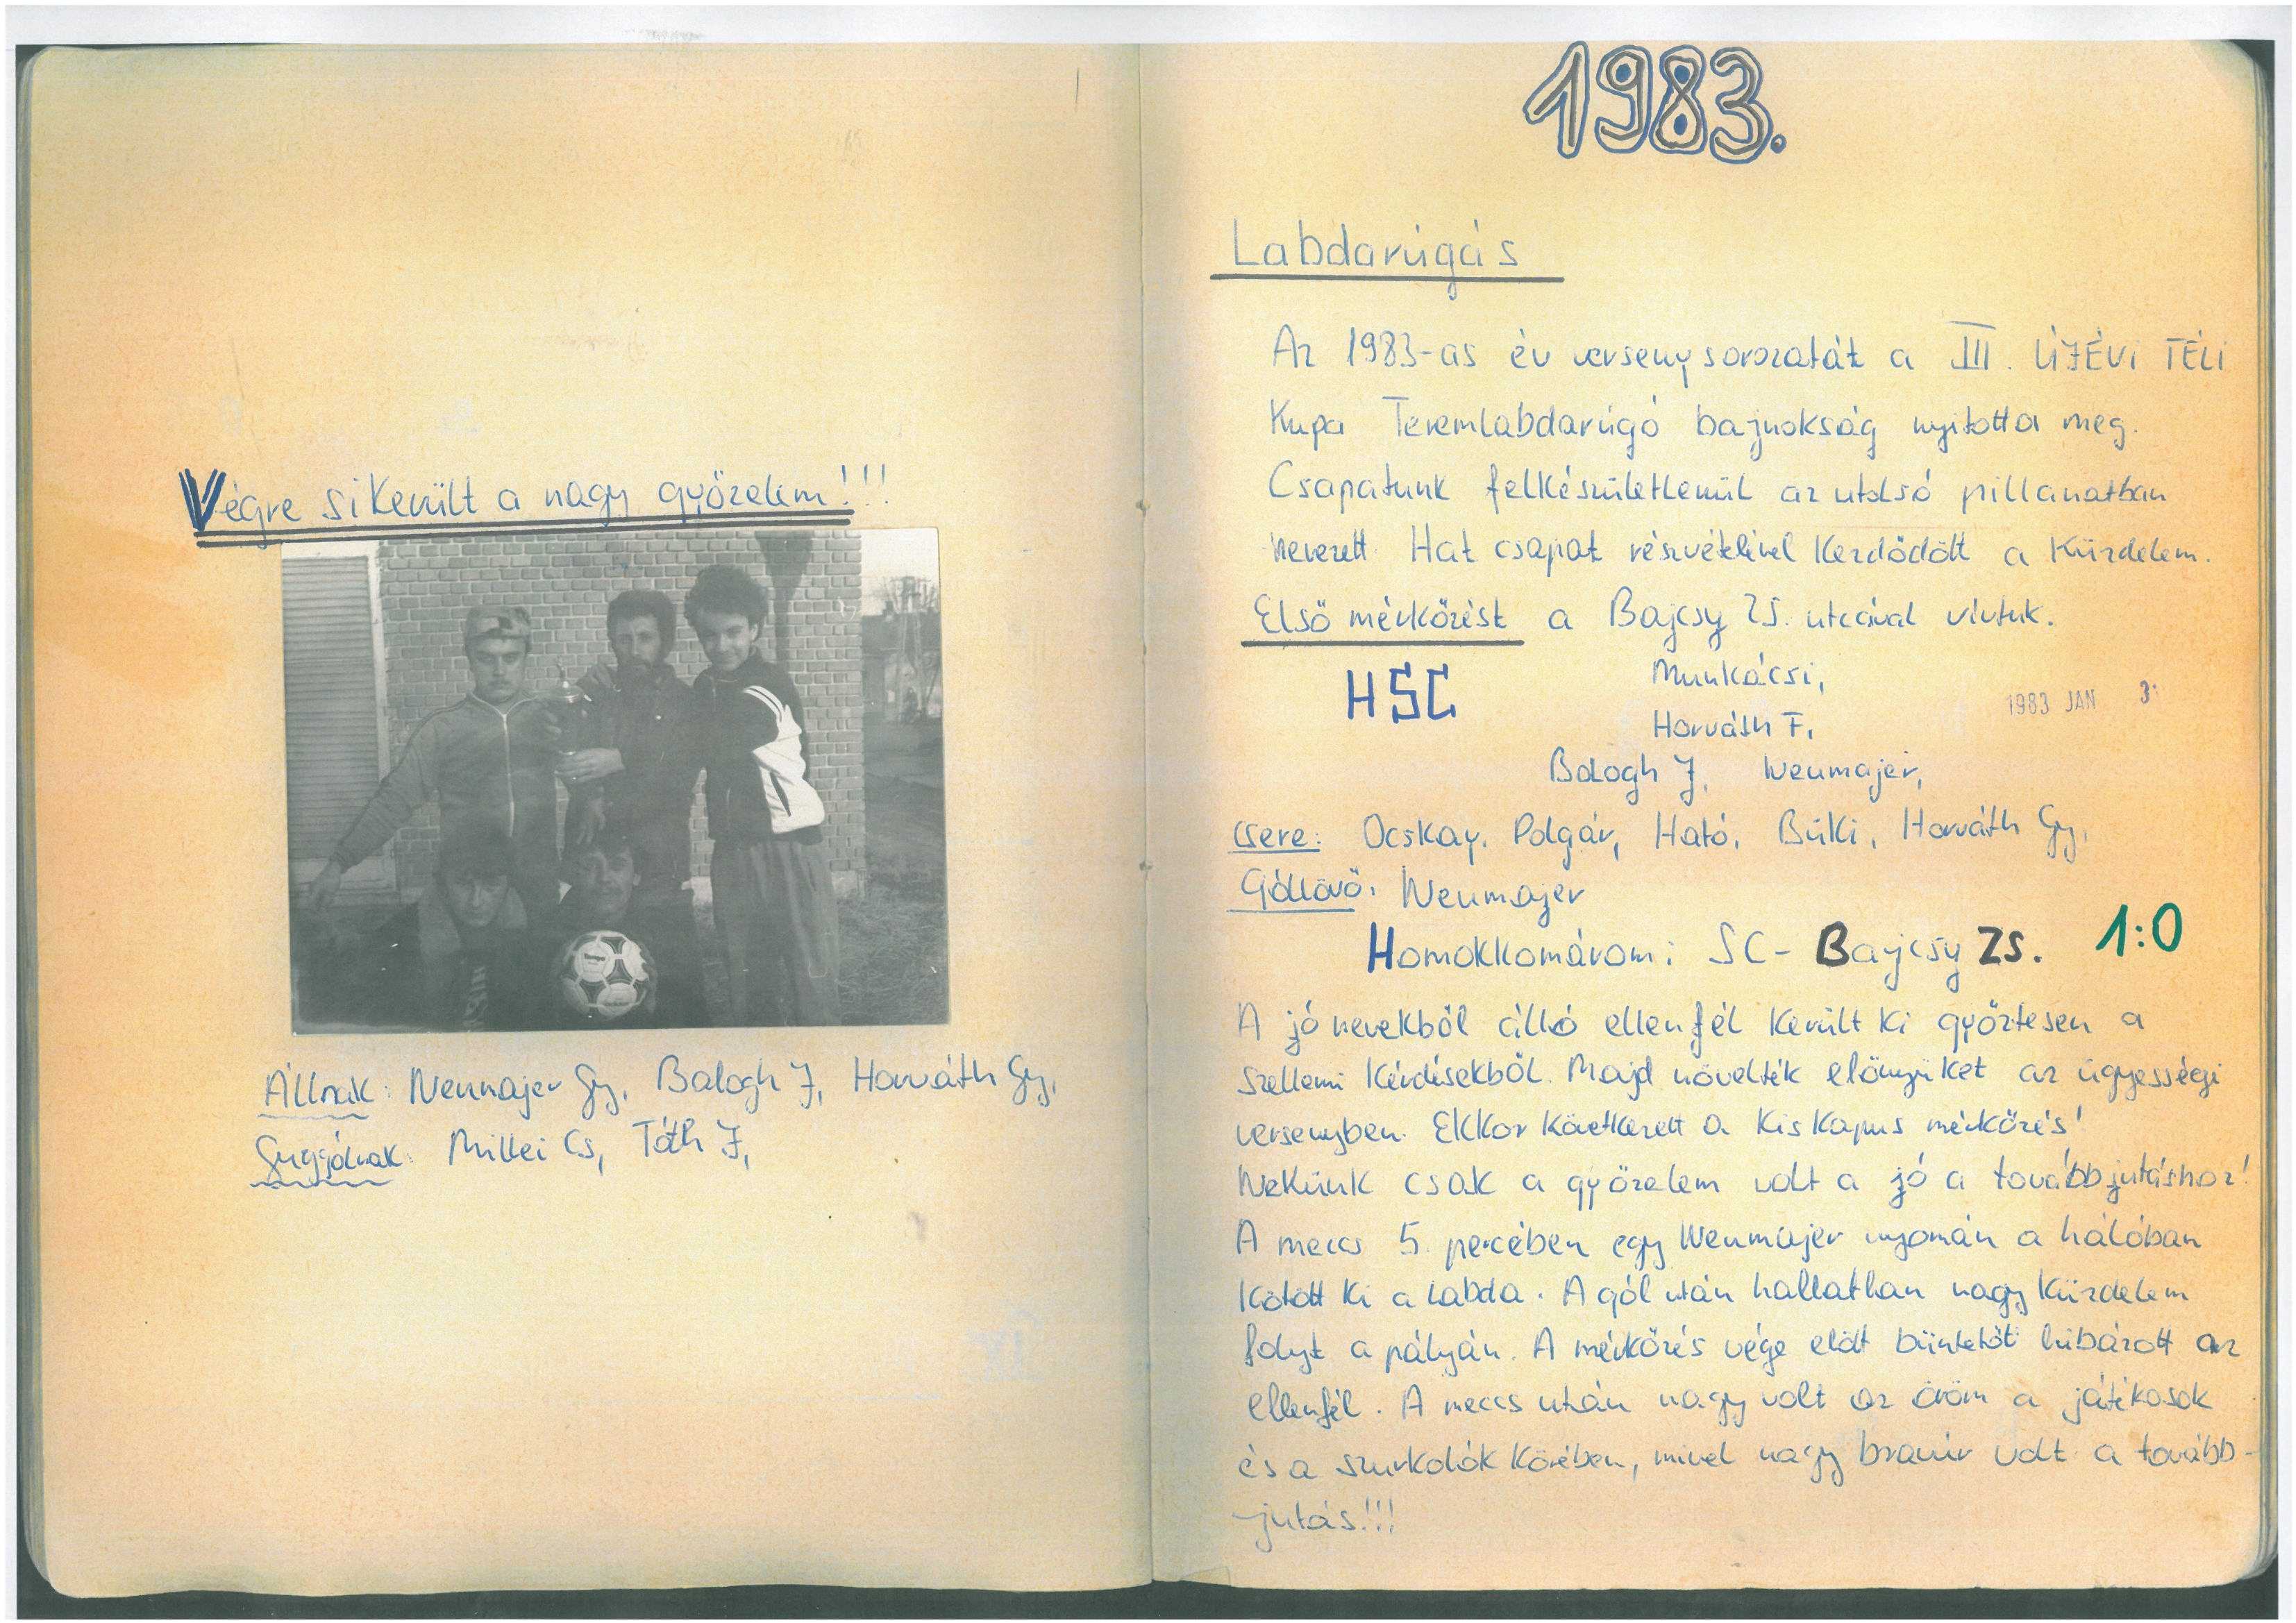 Végre sikerült a nagy győzelem!!!
Állnak: Neumajer Gy, Balogh J, Horváth Gy,
Guggolnak: Millei Cs, Tóth J,
1983.
Labdarúgás
Az 1983-as év versenysorozatát a III. ÚJÉVI TÉLI
Kupa Teremlabdarúgó bajnokság nyitotta meg.
Csapatunk felkészületlenül az utolsó pillanatban
nevezett. Hat csapat részvételével kezdődött a küzdelem.
Első mérkőzést a Bajcsy ZS. utcával vívtuk.
HSC
Munkácsi,
1983 JAN 3
Horváth F,
Balogh J, Neumajer,
csere: Ocskay, Polgár, Ható, Büki, Horváth Gy,
Góllövő: Neumajer
Homokkomáromi SC - Bajcsy ZS. 1:0
A jó nevekből álló ellenfél került ki győztesen a
szellemi kérdésekből. Majd növelték előnyüket az ügyességi
versenyben. Ekkor következett a kiskapus mérkőzés!
Nekünk csak a győzelem volt a jó a továbbjutáshoz!
A meccs 5. percében egy Neumajer nyomán a hálóban
kötött ki a labda. A gól után hallatlan nagy küzdelem
folyt a pályán. A mérkőzés vége előtt büntetőt hibázott az
ellenfél. A meccs után nagy volt az öröm a játékosok
és a szurkolók körében, mivel nagy bravúr volt a tovább-
-jutás!!!